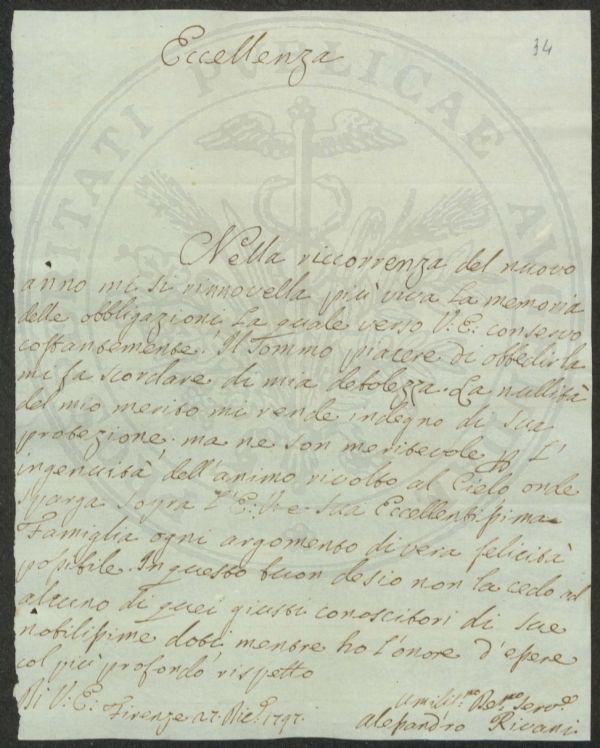 34
Eccellenza
Nella riccorrenza del nuovo
anno mi si rinnovella più viva la memoria
delle obbligazioni la quale verso V: E: conservo
costantemente. Il sommo piacere di obbedirla
mi fa scordare di mia debolezza. La nullità
del mio merito mi rende indegno di sua
protezione. ma ne son meritevole p l'
ingenuità dell'animo rivolto al Cielo onde
sparga sopra l'E: V: e sua Eccellentissima
Famiglia ogni argomento di vera felicità
possibile. In questo buon desio non la cedo ad
alcuno di quei giusti conoscitori di sue
nobilissime doti, mentre ho l'onore d'essere
col più profondo rispetto
Di V: E:
Firenze 27. Dice. 1797.
Umiliss.mo Dev.mo Servo
Alessandro Rivani
PUBLICAE